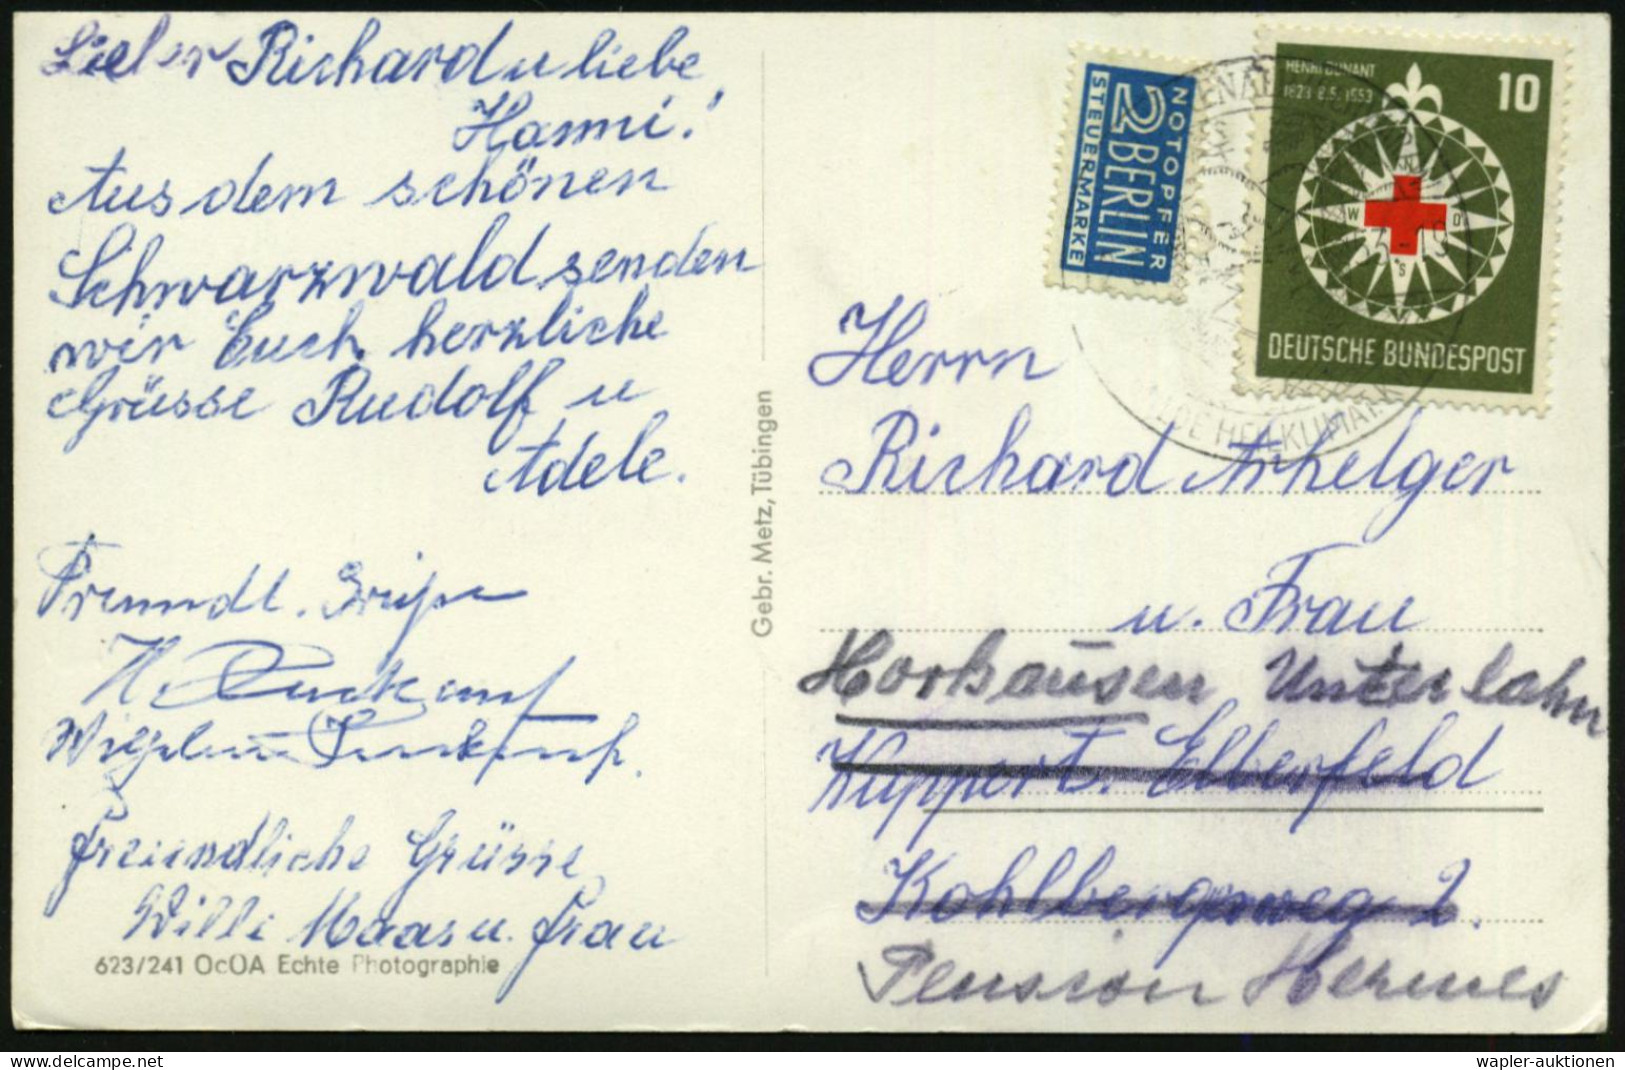 Lieber Richard u liebe
Hanni!
Aus dem schönen
Schwarzwald senden
wir Euch herzliche
Grüsse Rudolf u
Adele.
Freundl. Grüße
H.
freundliche Grüsse
Willi Maas u. Frau
623/241 OcOA Echte Photographie
Gebr. Metz, Tübingen
NOTOPFER
2 BERLIN
STEUERMARKE
HENRI DUNANT
1828 8.5. 1953
10
W O
S
DEUTSCHE BUNDESPOST
HEILKLIMA
Herrn
Richard Arhelger
u. Frau
Horhausen Unterlahn
Wuppert. Elberfeld
Kohlbergsweg 2.
Pension Hermes
delcampe.net
wapler-auktionen